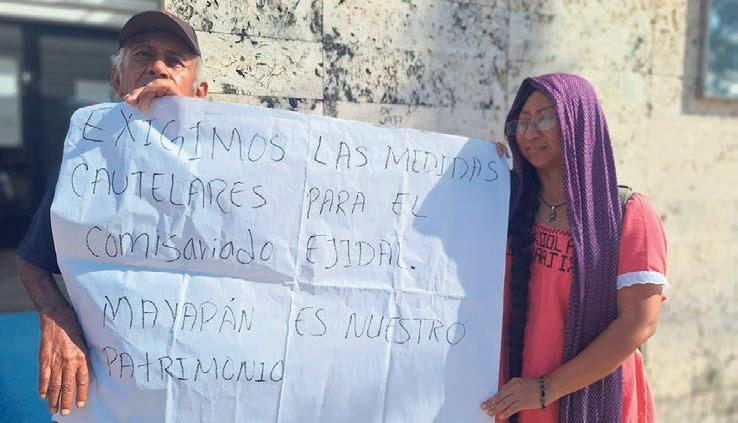 EXIGIMOS LAS MEDIDAS
CAUTELARES PARA EL
Comisariado EJIDAL.
MAYAPÁN ES NUESTRO
PATRIMONIO